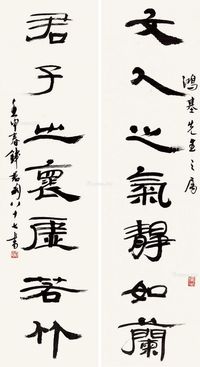 鴻基先生之屬
文人之氣靜如蘭
君子之褱虛若竹
壬申春錢君匋八十七書